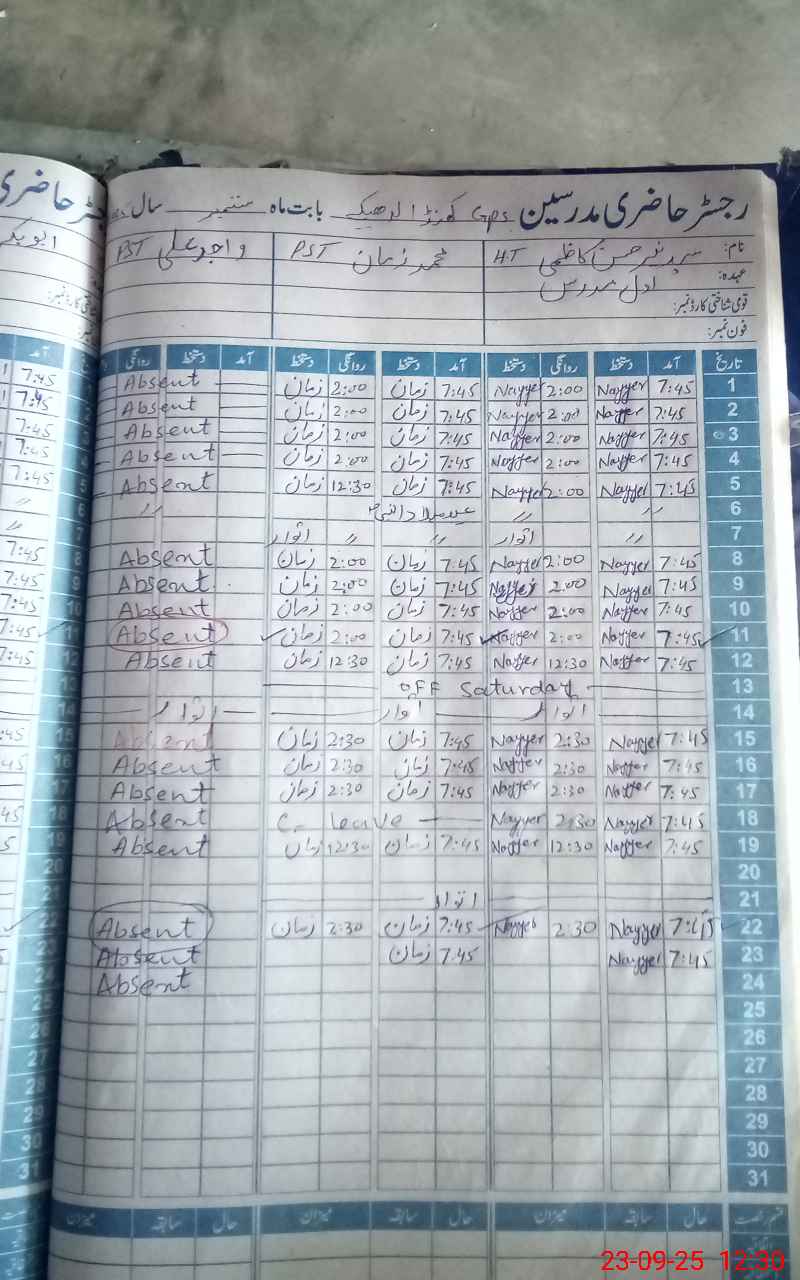 رجسٹر حاضری مدرسین GPS بابت ماہ ستمبر سال
نام: سید نیر حسن کاظمی HT محمد زمان PST واجد علی PST
عہدہ: اول مدرس
قومی شناختی کارڈ نمبر:
فون نمبر:
تاریخ آمد دستخط روانگی دستخط آمد دستخط روانگی دستخط آمد دستخط روانگی
1 7:45 Nayyer 2:00 Nayyer 7:45 زمان 2:00 زمان Absent
2 7:45 Nayyer 2:00 Nayyer 7:45 زمان 2:00 زمان Absent
3 7:45 Nayyer 2:00 Nayyer 7:45 زمان 2:00 زمان Absent
4 7:45 Nayyer 2:00 Nayyer 7:45 زمان 2:00 زمان Absent
5 7:45 Nayyer 2:00 Nayyer 7:45 زمان 12:30 زمان Absent
6 〃 〃 عید میلاد النبی 〃
7 〃 اتوار 〃 〃 اتوار
8 7:45 Nayyer 2:00 Nayyer 7:45 زمان 2:00 زمان Absent
9 7:45 Nayyer 2:00 Nayyer 7:45 زمان 2:00 زمان Absent
10 7:45 Nayyer 2:00 Nayyer 7:45 زمان 2:00 زمان Absent
11 7:45 Nayyer 2:00 Nayyer 7:45 زمان 2:00 زمان Absent
12 7:45 Nayyer 12:30 Nayyer 7:45 زمان 12:30 زمان Absent
13 OFF Saturday
14 اتوار اتوار اتوار
15 7:45 Nayyer 2:30 Nayyer 7:45 زمان 2:30 زمان Absent
16 7:45 Nayyer 2:30 Nayyer 7:45 زمان 2:30 زمان Absent
17 7:45 Nayyer 2:30 Nayyer 7:45 زمان 2:30 زمان Absent
18 7:45 Nayyer 2:30 Nayyer C. leave Absent
19 7:45 Nayyer 12:30 Nayyer 7:45 زمان 12:30 زمان Absent
20
21 اتوار
22 7:45 Nayyer 2:30 Nayyer 7:45 زمان 2:30 زمان Absent
23 7:45 Nayyer 7:45 زمان Absent
24 Absent
25
26
27
28
29
30
31
قسم رخصت حال سابقہ میزان حال سابقہ میزان حال سابقہ میزان
23-09-25 12:30